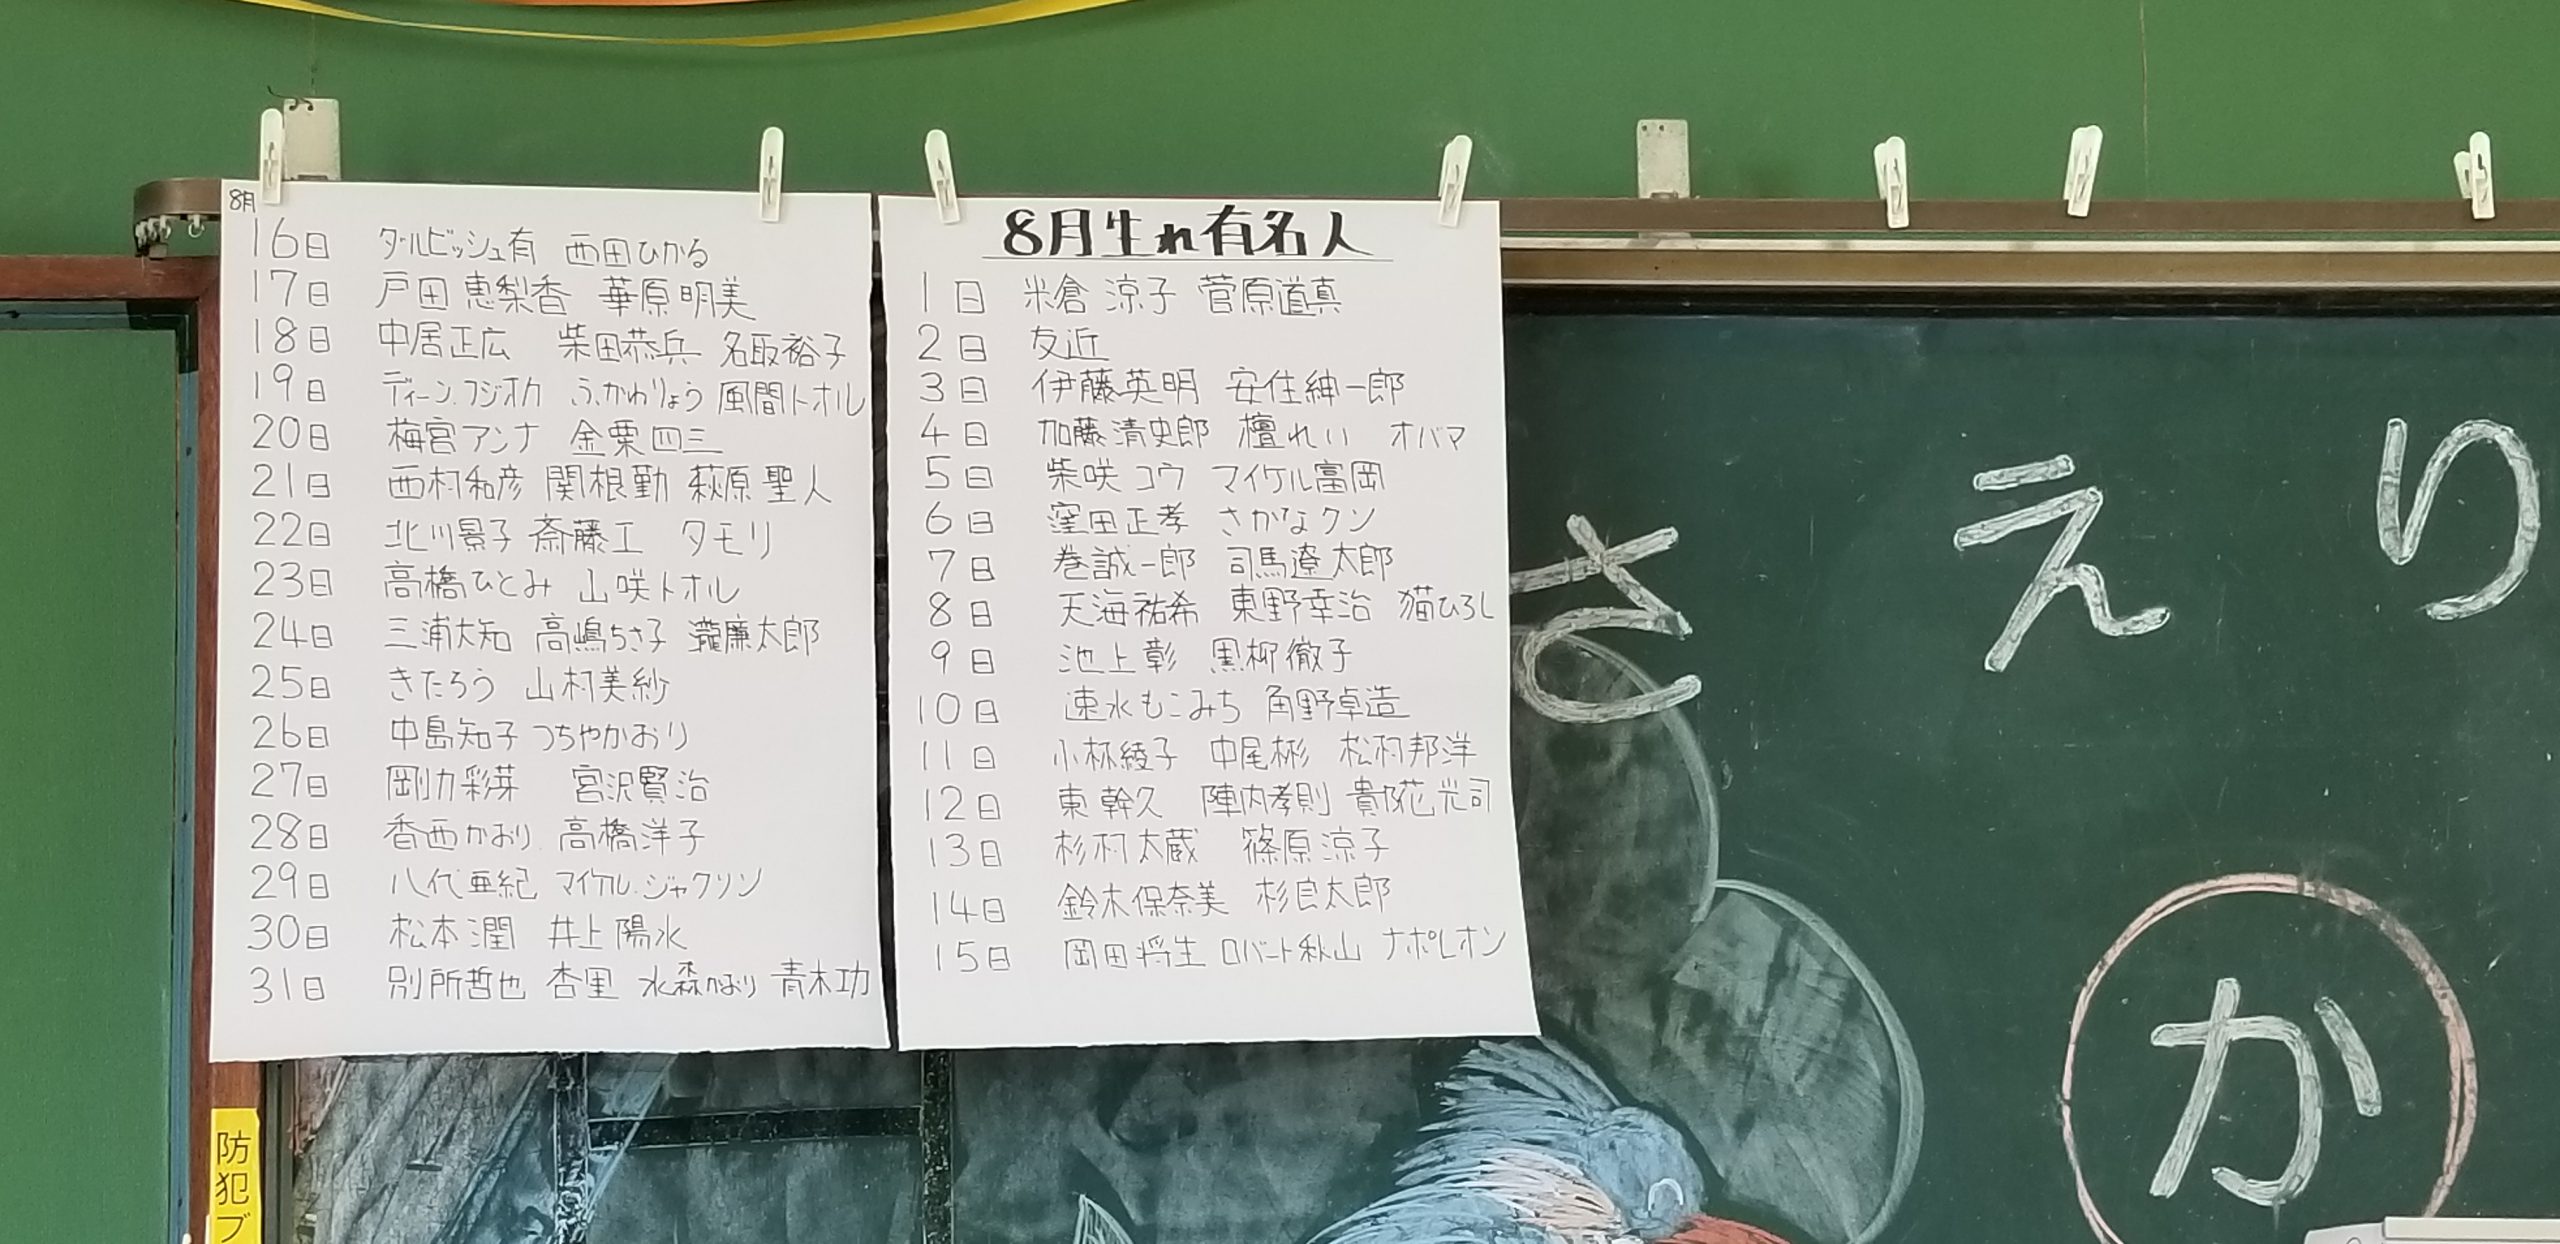 8月生れ有名人
1日 米倉涼子 菅原道真
2日 友近
3日 伊藤英明 安住紳一郎
4日 加藤清史郎 檀れい オバマ
5日 柴咲コウ マイケル富岡
6日 窪田正孝 さかなクン
7日 巻誠一郎 司馬遼太郎
8日 天海祐希 東野幸治 猫ひろし
9日 池上彰 黒柳徹子
10日 速水もこみち 角野卓造
11日 小林綾子 中尾彬 松村邦洋
12日 東幹久 陣内孝則 貴乃花光司
13日 杉村太蔵 篠原涼子
14日 鈴木保奈美 杉良太郎
15日 岡田将生 ロバート秋山 ナポレオン
8月
16日 ダルビッシュ有 西田ひかる
17日 戸田恵梨香 華原明美
18日 中居正広 柴田恭兵 名取裕子
19日 ディーン.フジオカ ふかわりょう 風間トオル
20日 梅宮アンナ 金栗四三
21日 西村和彦 関根勤 萩原聖人
22日 北川景子 斎藤工 タモリ
23日 高橋ひとみ 山咲トオル
24日 三浦大知 高嶋ちさ子 瀧廉太郎
25日 きたろう 山村美紗
26日 中島知子 つちやかおり
27日 剛力彩芽 宮沢賢治
28日 香西かおり 高橋洋子
29日 八代亜紀 マイケル.ジャクソン
30日 松本潤 井上陽水
31日 別所哲也 杏里 水森かおり 青木功
さえり
か
防犯ブ